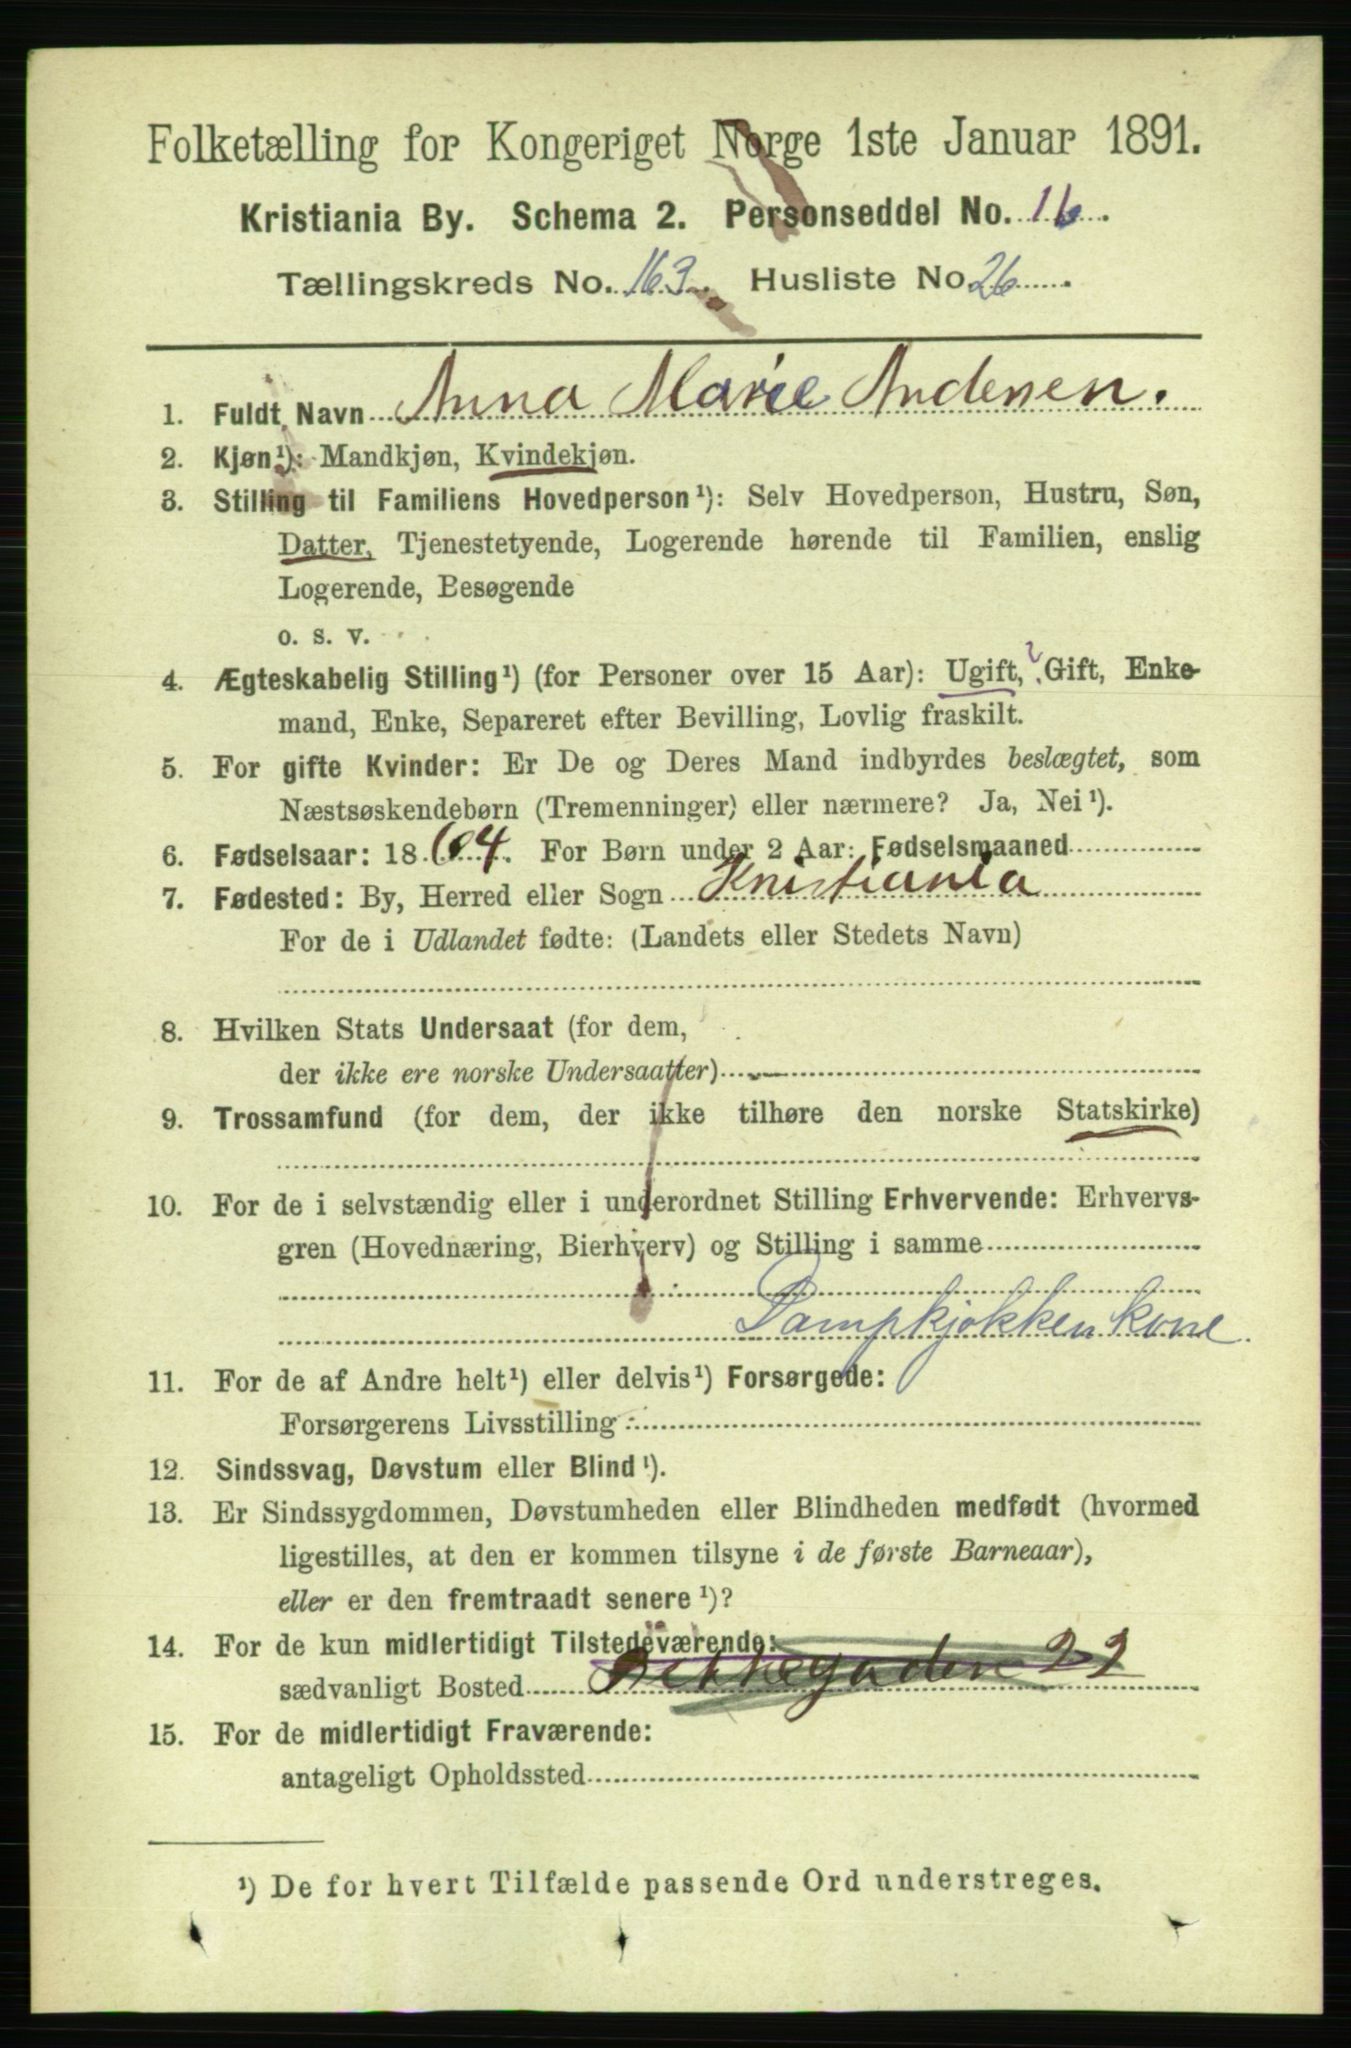 Folketælling for Kongeriget Norge 1ste Januar 1891.
Kristiania By. Schema 2. Personseddel No. 16.
Tællingskreds No. 163. Husliste No 26.
1. Fuldt Navn Anna Marie Andersen.
2. Kjøn¹): Mandkjøn, Kvindekjøn.
3. Stilling til Familiens Hovedperson¹): Selv Hovedperson, Hustru, Søn,
Datter, Tjenestetyende, Logerende hørende til Familien, enslig
Logerende, Besøgende
o. s. v.
4. Ægteskabelig Stilling¹) (for Personer over 15 Aar): Ugift, ? Gift, Enke-
mand, Enke, Separeret efter Bevilling, Lovlig fraskilt.
5. For gifte Kvinder: Er De og Deres Mand indbyrdes beslægtet, som
Næstsøskendebørn (Tremenninger) eller nærmere? Ja, Nei¹).
6. Fødselsaar: 1864. For Børn under 2 Aar: Fødselsmaaned
7. Fødested: By, Herred eller Sogn Kristiania
For de i Udlandet fødte: (Landets eller Stedets Navn)
8. Hvilken Stats Undersaat (for dem,
der ikke ere norske Undersaatter)
9. Trossamfund (for dem, der ikke tilhøre den norske Statskirke)
10. For de i selvstændig eller i underordnet Stilling Erhvervende: Erhvervs-
gren (Hovednæring, Bierhverv) og Stilling i samme
Dampkjøkkenkone
11. For de af Andre helt¹) eller delvis¹) Forsørgede:
Forsørgerens Livsstilling:
12. Sindssvag, Døvstum eller Blind¹).
13. Er Sindssygdommen, Døvstumheden eller Blindheden medfødt (hvormed
ligestilles, at den er kommen tilsyne i de første Barneaar),
eller er den fremtraadt senere¹)?
14. For de kun midlertidigt Tilstedeværende:
sædvanligt Bosted 22
15. For de midlertidigt Fraværende:
antageligt Opholdssted
¹) De for hvert Tilfælde passende Ord understreges.